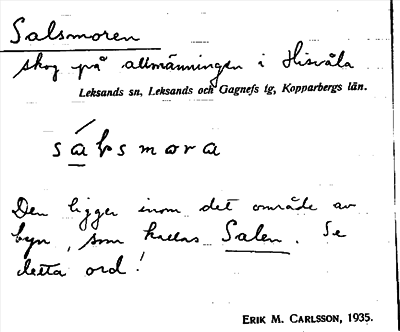 Salsmoren
skog på allmänningen i Hisvåla
Leksands sn, Leksands och Gagnefs tg, Kopparbergs län.
Den ligger inom det område av
byn, som kallas Salen. Se
detta ord!
ERIK M. CARLSSON, 1935.